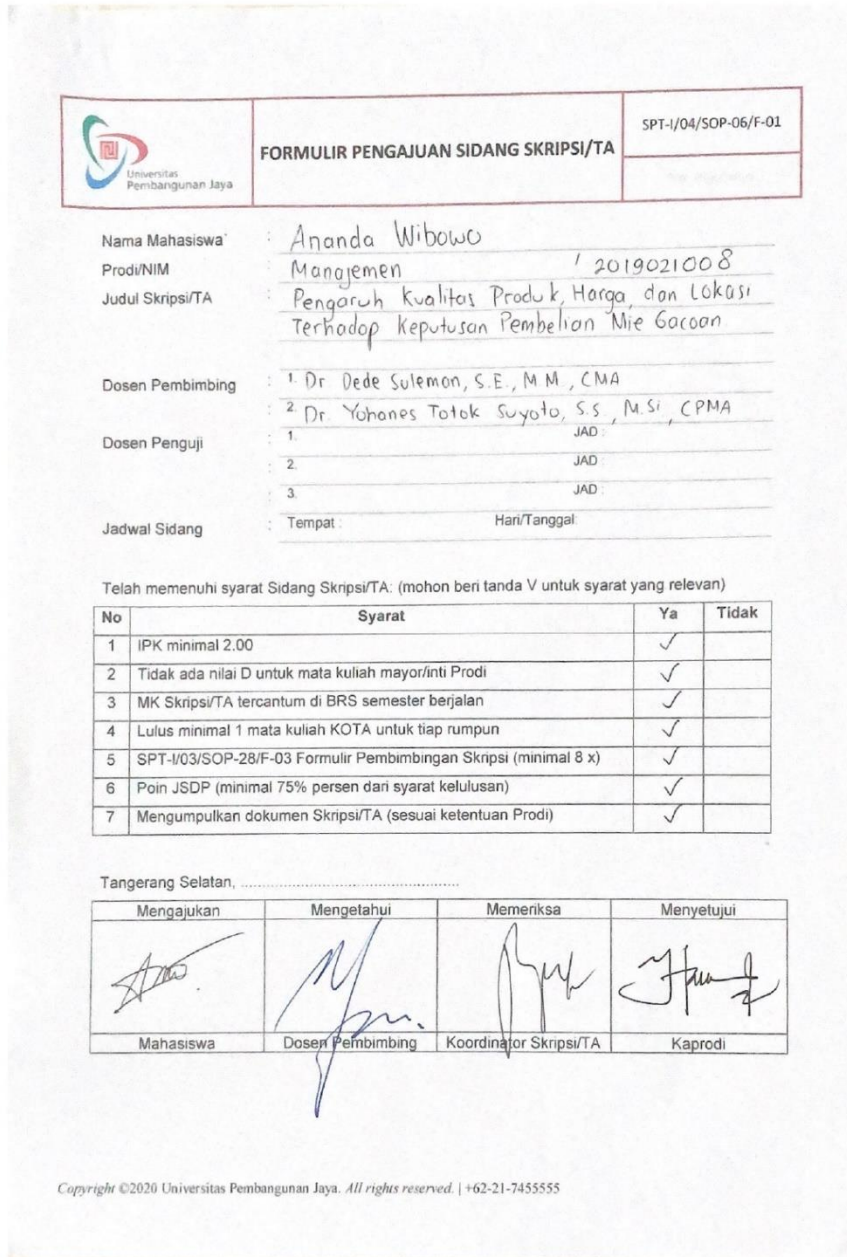 Universitas
Pembangunan Jaya
FORMULIR PENGAJUAN SIDANG SKRIPSI/TA
SPT-I/04/SOP-06/F-01
Nama Mahasiswa : Ananda Wibowo
Prodi/NIM : Manajemen / 2019021008
Judul Skripsi/TA : Pengaruh Kualitas Produk, Harga, dan Lokasi
Terhadap Keputusan Pembelian Mie Gacoan
Dosen Pembimbing : 1. Dr Dede Suleman, S.E., M.M., CMA
: 2. Dr. Yohanes Totok Suyoto, S.S., M.Si, CPMA
Dosen Penguji : 1. JAD :
: 2. JAD :
: 3. JAD :
Jadwal Sidang : Tempat : Hari/Tanggal:
Telah memenuhi syarat Sidang Skripsi/TA: (mohon beri tanda V untuk syarat yang relevan)
No Syarat Ya Tidak
1 IPK minimal 2.00 ✓
2 Tidak ada nilai D untuk mata kuliah mayor/inti Prodi ✓
3 MK Skripsi/TA tercantum di BRS semester berjalan ✓
4 Lulus minimal 1 mata kuliah KOTA untuk tiap rumpun ✓
5 SPT-I/03/SOP-28/F-03 Formulir Pembimbingan Skripsi (minimal 8 x) ✓
6 Poin JSDP (minimal 75% persen dari syarat kelulusan) ✓
7 Mengumpulkan dokumen Skripsi/TA (sesuai ketentuan Prodi) ✓
Tangerang Selatan, ................................................
Mengajukan Mengetahui Memeriksa Menyetujui
Mahasiswa Dosen Pembimbing Koordinator Skripsi/TA Kaprodi
Copyright ©2020 Universitas Pembangunan Jaya. All rights reserved. | +62-21-7455555